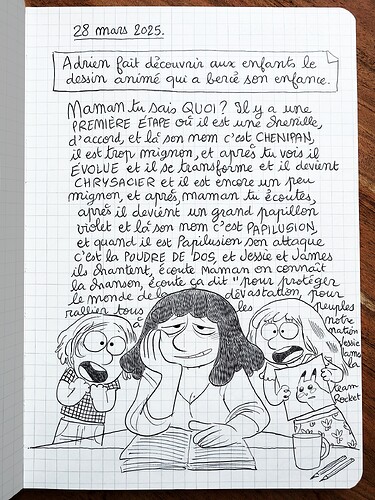 28 mars 2025.
Adrien fait découvrir aux enfants le
dessin animé qui a bercé son enfance.
Maman tu sais QUOI? Il y a une
PREMIÈRE ÉTAPE où il est une chenille,
d'accord, et là son nom c'est CHENIPAN,
il est trop mignon, et après tu vois il
ÉVOLUE et il se transforme et il devient
CHRYSACIER et il est encore un peu
mignon, et après, maman tu écoutes,
après il devient un grand papillon
violet et là son nom c'est PAPILUSION,
et quand il est Papilusion son attaque
c'est la POUDRE DE DOS, et Jessie et James
ils chantent, écoute Maman on connaît
la chanson, écoute ça dit "pour protéger
le monde de la dévastation, pour
rallier tous les peuples
à notre
nation
Jessie
James
la
Team
Rocket